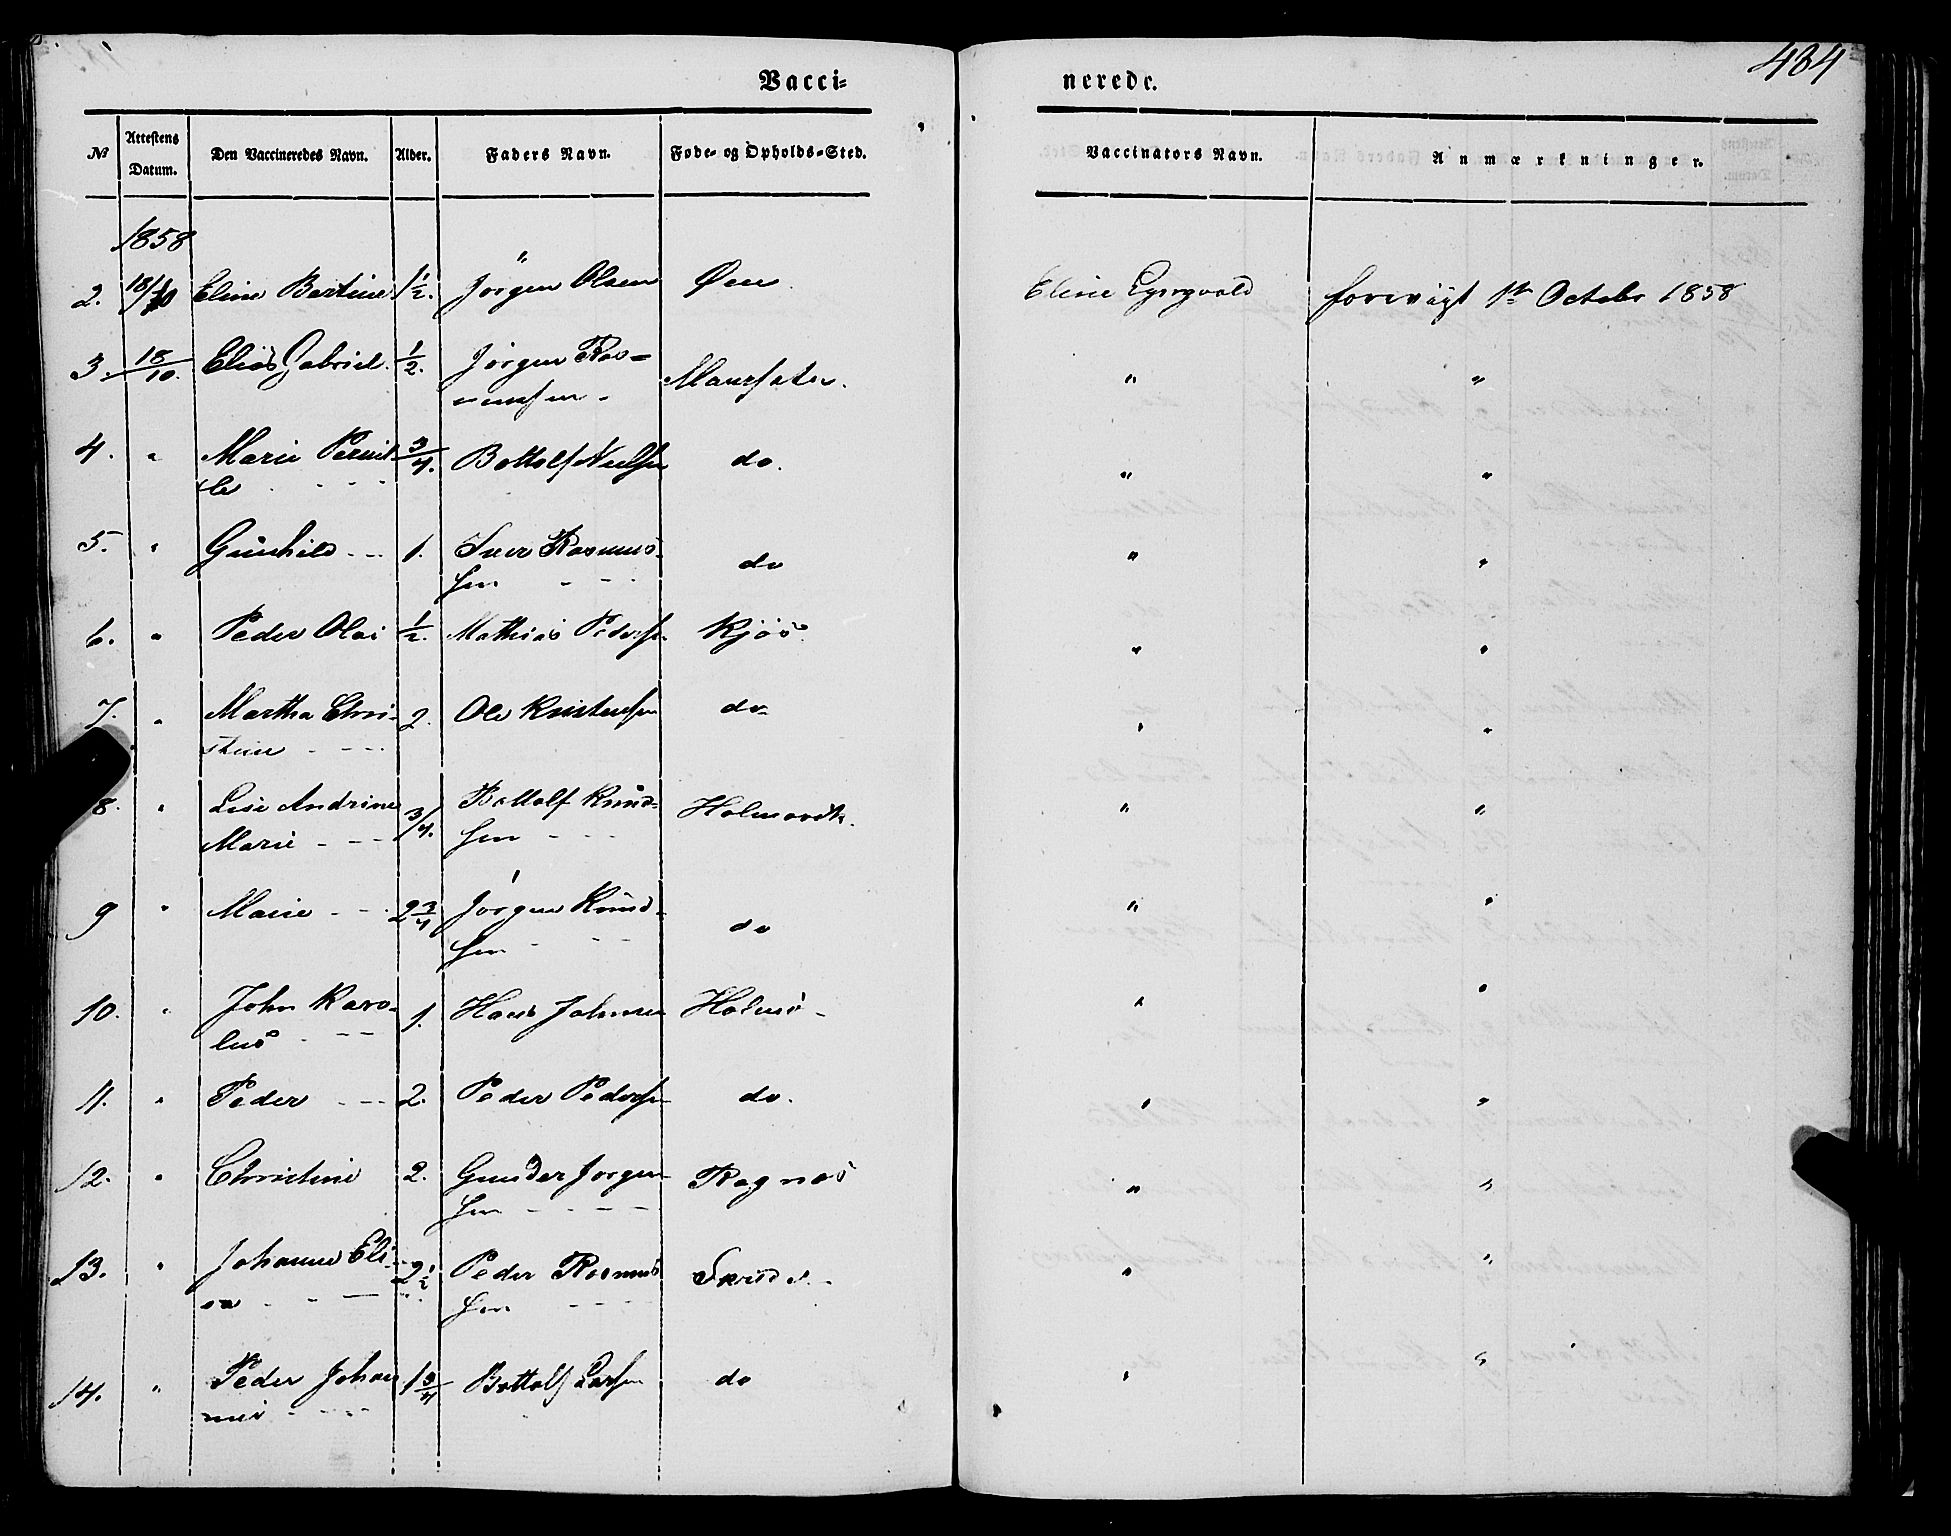 484
Vacci= nerede.
No Attestens Datum. Den Vaccineredes Navn. Alder. Faders Navn. Føde- og Opholds-Sted. Vaccinators Navn. Anmærkninger.
1858
2. 18/10 Eline Bertine 1½. Jörgen Olsen Øen. Elerie forevügt 1ste Octobr 1858
3. 18/10. Elias Gabriel. ½. Jörgen Ras= " "
mussen - Maursæter.
4. " Marie Pernil- 3/4. Bottolf Nielsen do. " "
le - - -
5. " Gunhild - - 1. Iver Rasmus- do " "
sen - - -
6. " Peder Olai ½. Mathias Pedersen Kjös. " "
7. " Martha Chri- 2. Ole Knutsen do " "
stine - - -
8. " Lise Andrine 3/4. Bottolf Knud- Holmevik. " "
Marie - - - sen - - -
9 " Marie - - 2 3/4 Jörgen Knud- do " "
sen - - -
10. " John Karo- 1. Hans Johnsen Holmö - " "
lus - - -
11. " Peder - - - 2. Peder Pedersen do. " "
12. " Christine 2. Gunder Jörgen- Ragnæs " "
sen - - - -
13. " Johanne Eli- 2½ Peder Rasmus Skrede. - " "
sa - - - sen - - - -
14. " Peder Johan 1 3/4 Bottolf Larsen do " "
nes - - - -